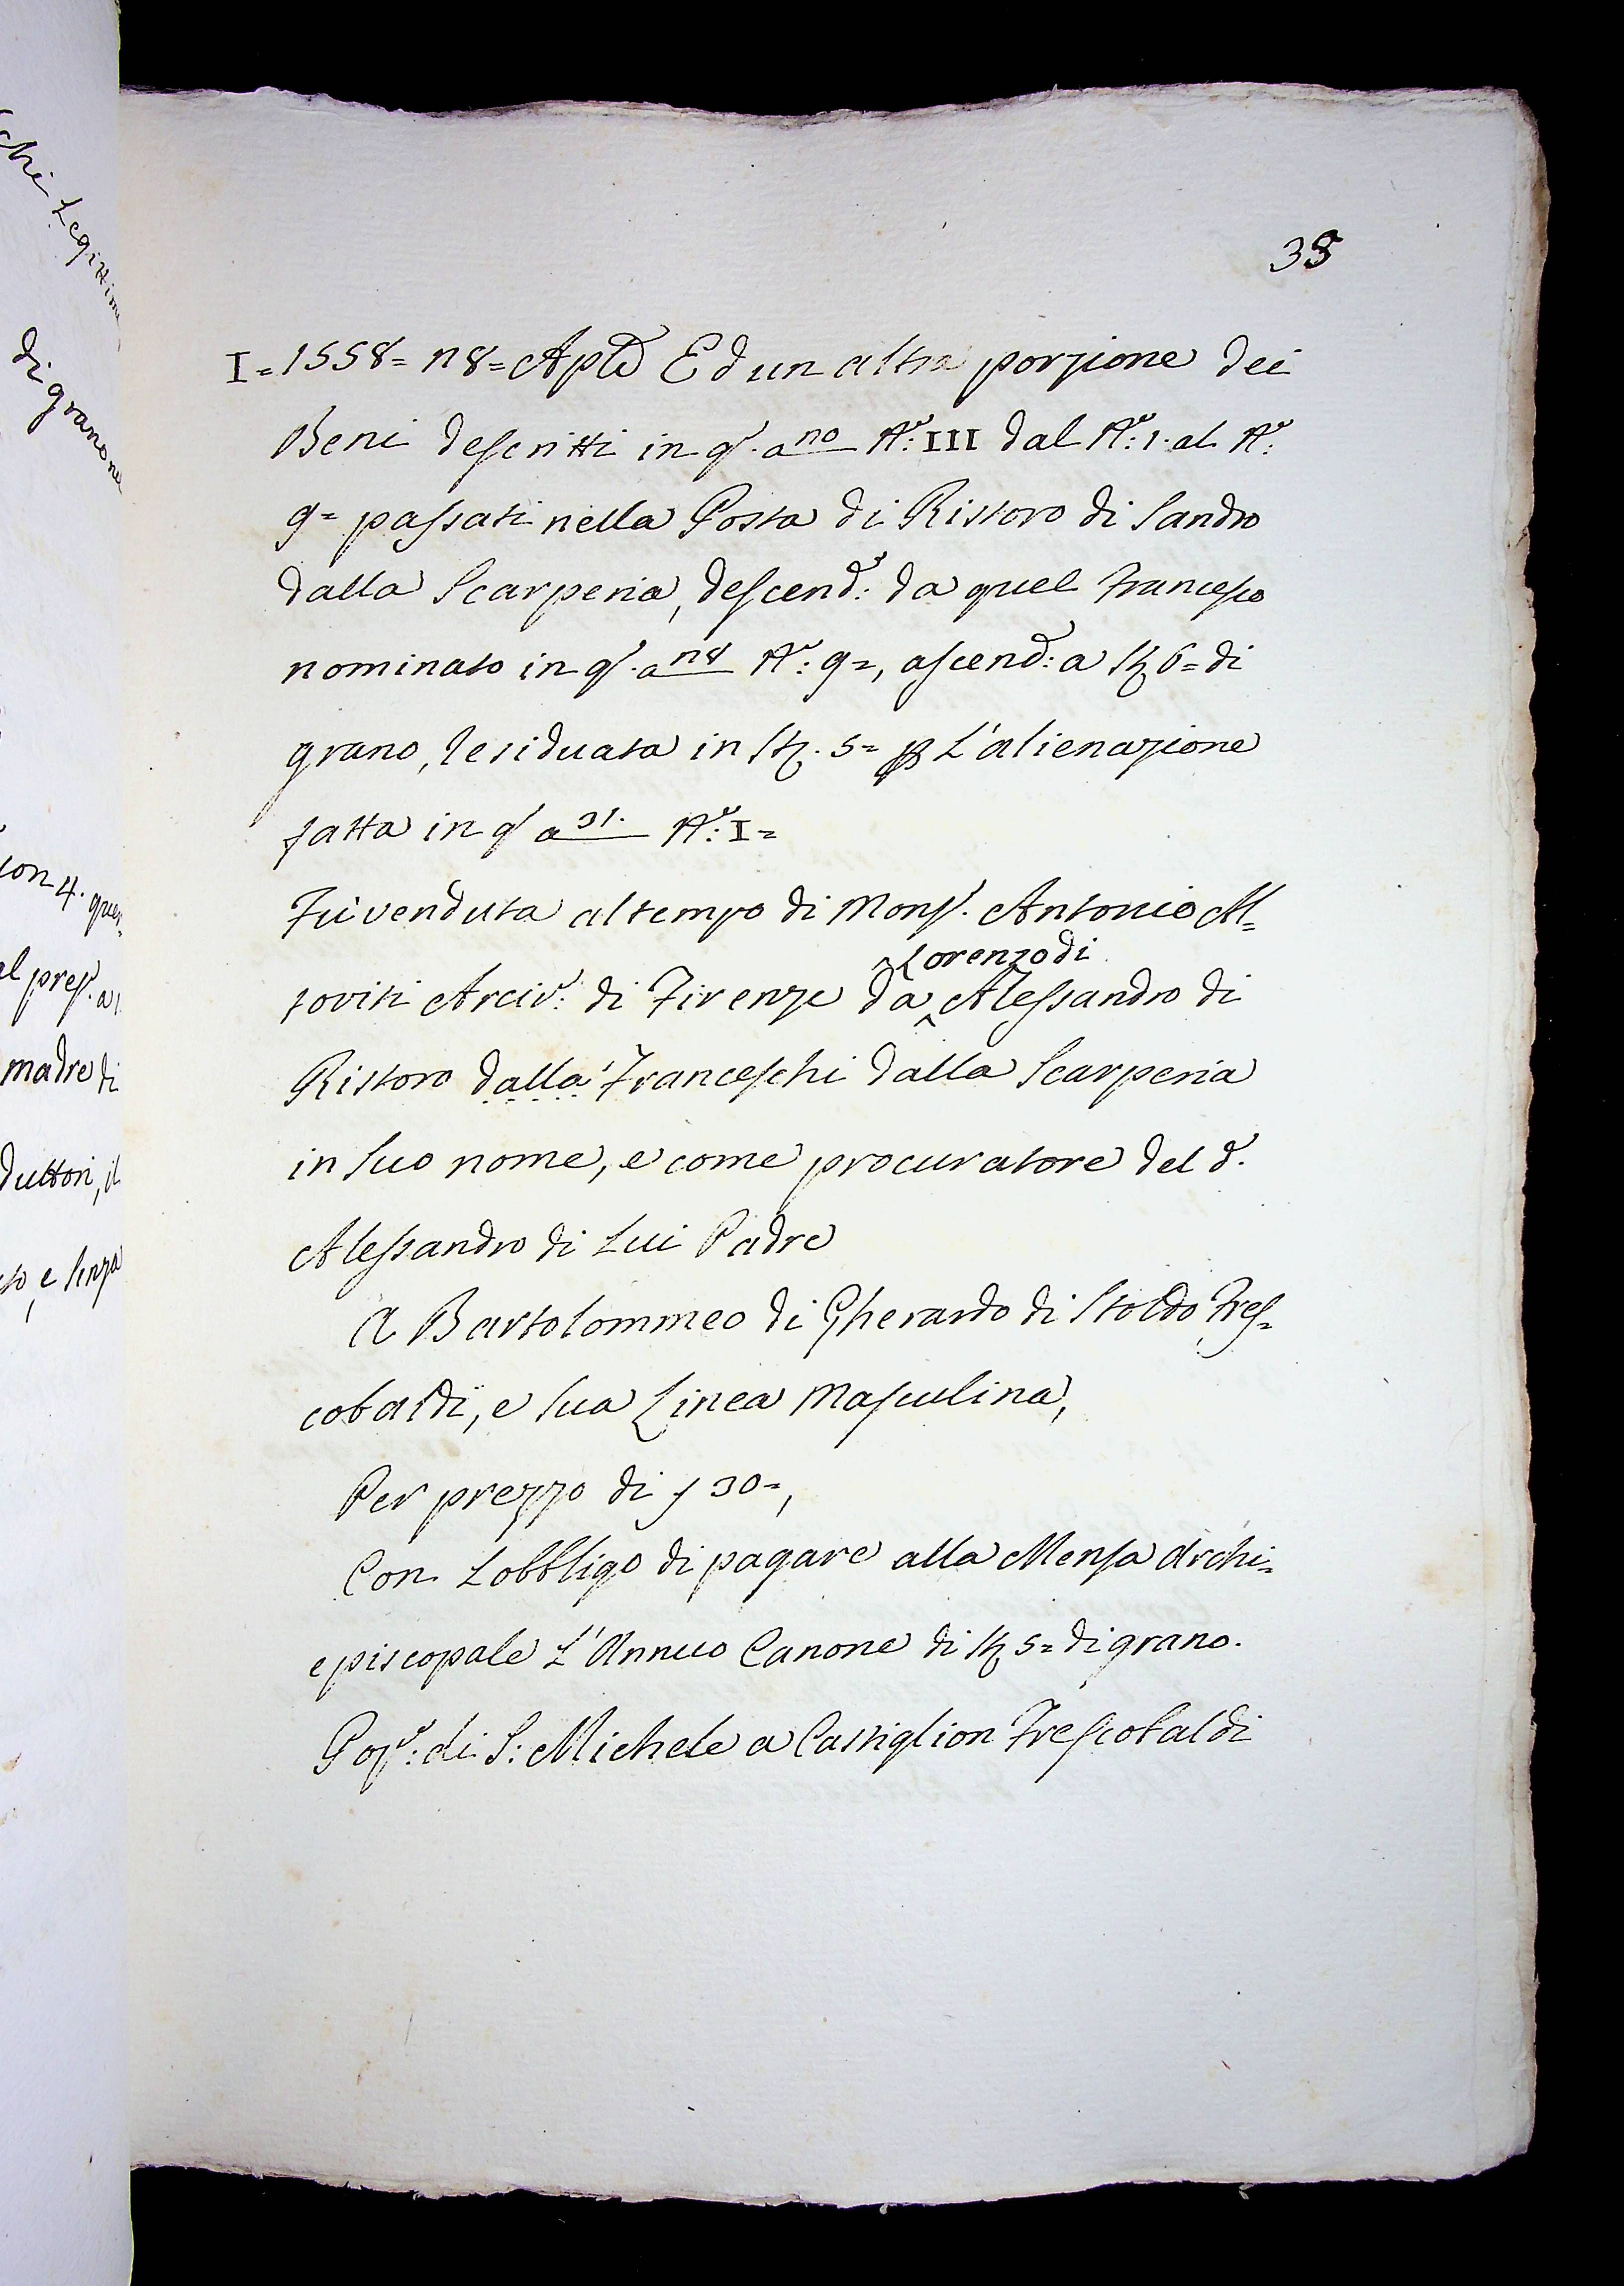 35
I = 1558 = 18 = Aple Ed un altra porzione dei
Beni descritti in q.to a 110 N.o: III dal N.o: 1. al N.o:
9 = passati nella Posta di Ristoro di Sandro
dalla Scarperia, descend.e: da quel Francesco
nominato in q.to a 18 N.o: 9 =, ascend.e: a st: 6 = di
grano, residuata in st: 5 = p L'alienazione
fatta in q.to a 31. N.o: I =
Fù venduta al tempo di Mons.r Antonio Al=
Lorenzo di
toviti Arciv.o: di Firenze da ^ Alessandro di
Ristoro dalla Franceschi dalla Scarperia
in suo nome, e come procuratore del d.o
Alessandro di Lui Padre
A Bartolommeo di Gherardo di Stoldo Fres=
cobaldi, e sua Linea Masculina,
Per prezzo di f 30 =,
Con Lobbligo di pagare alla Mensa Archi=
episcopale L'Annuo Canone di st: 5 = di grano.
Pop.o: di S: Michele a Castiglion Frescobaldi
chi Legittimi
di grano ne
con 4. quer=
al pres.
madre di
duttori, il
e senza